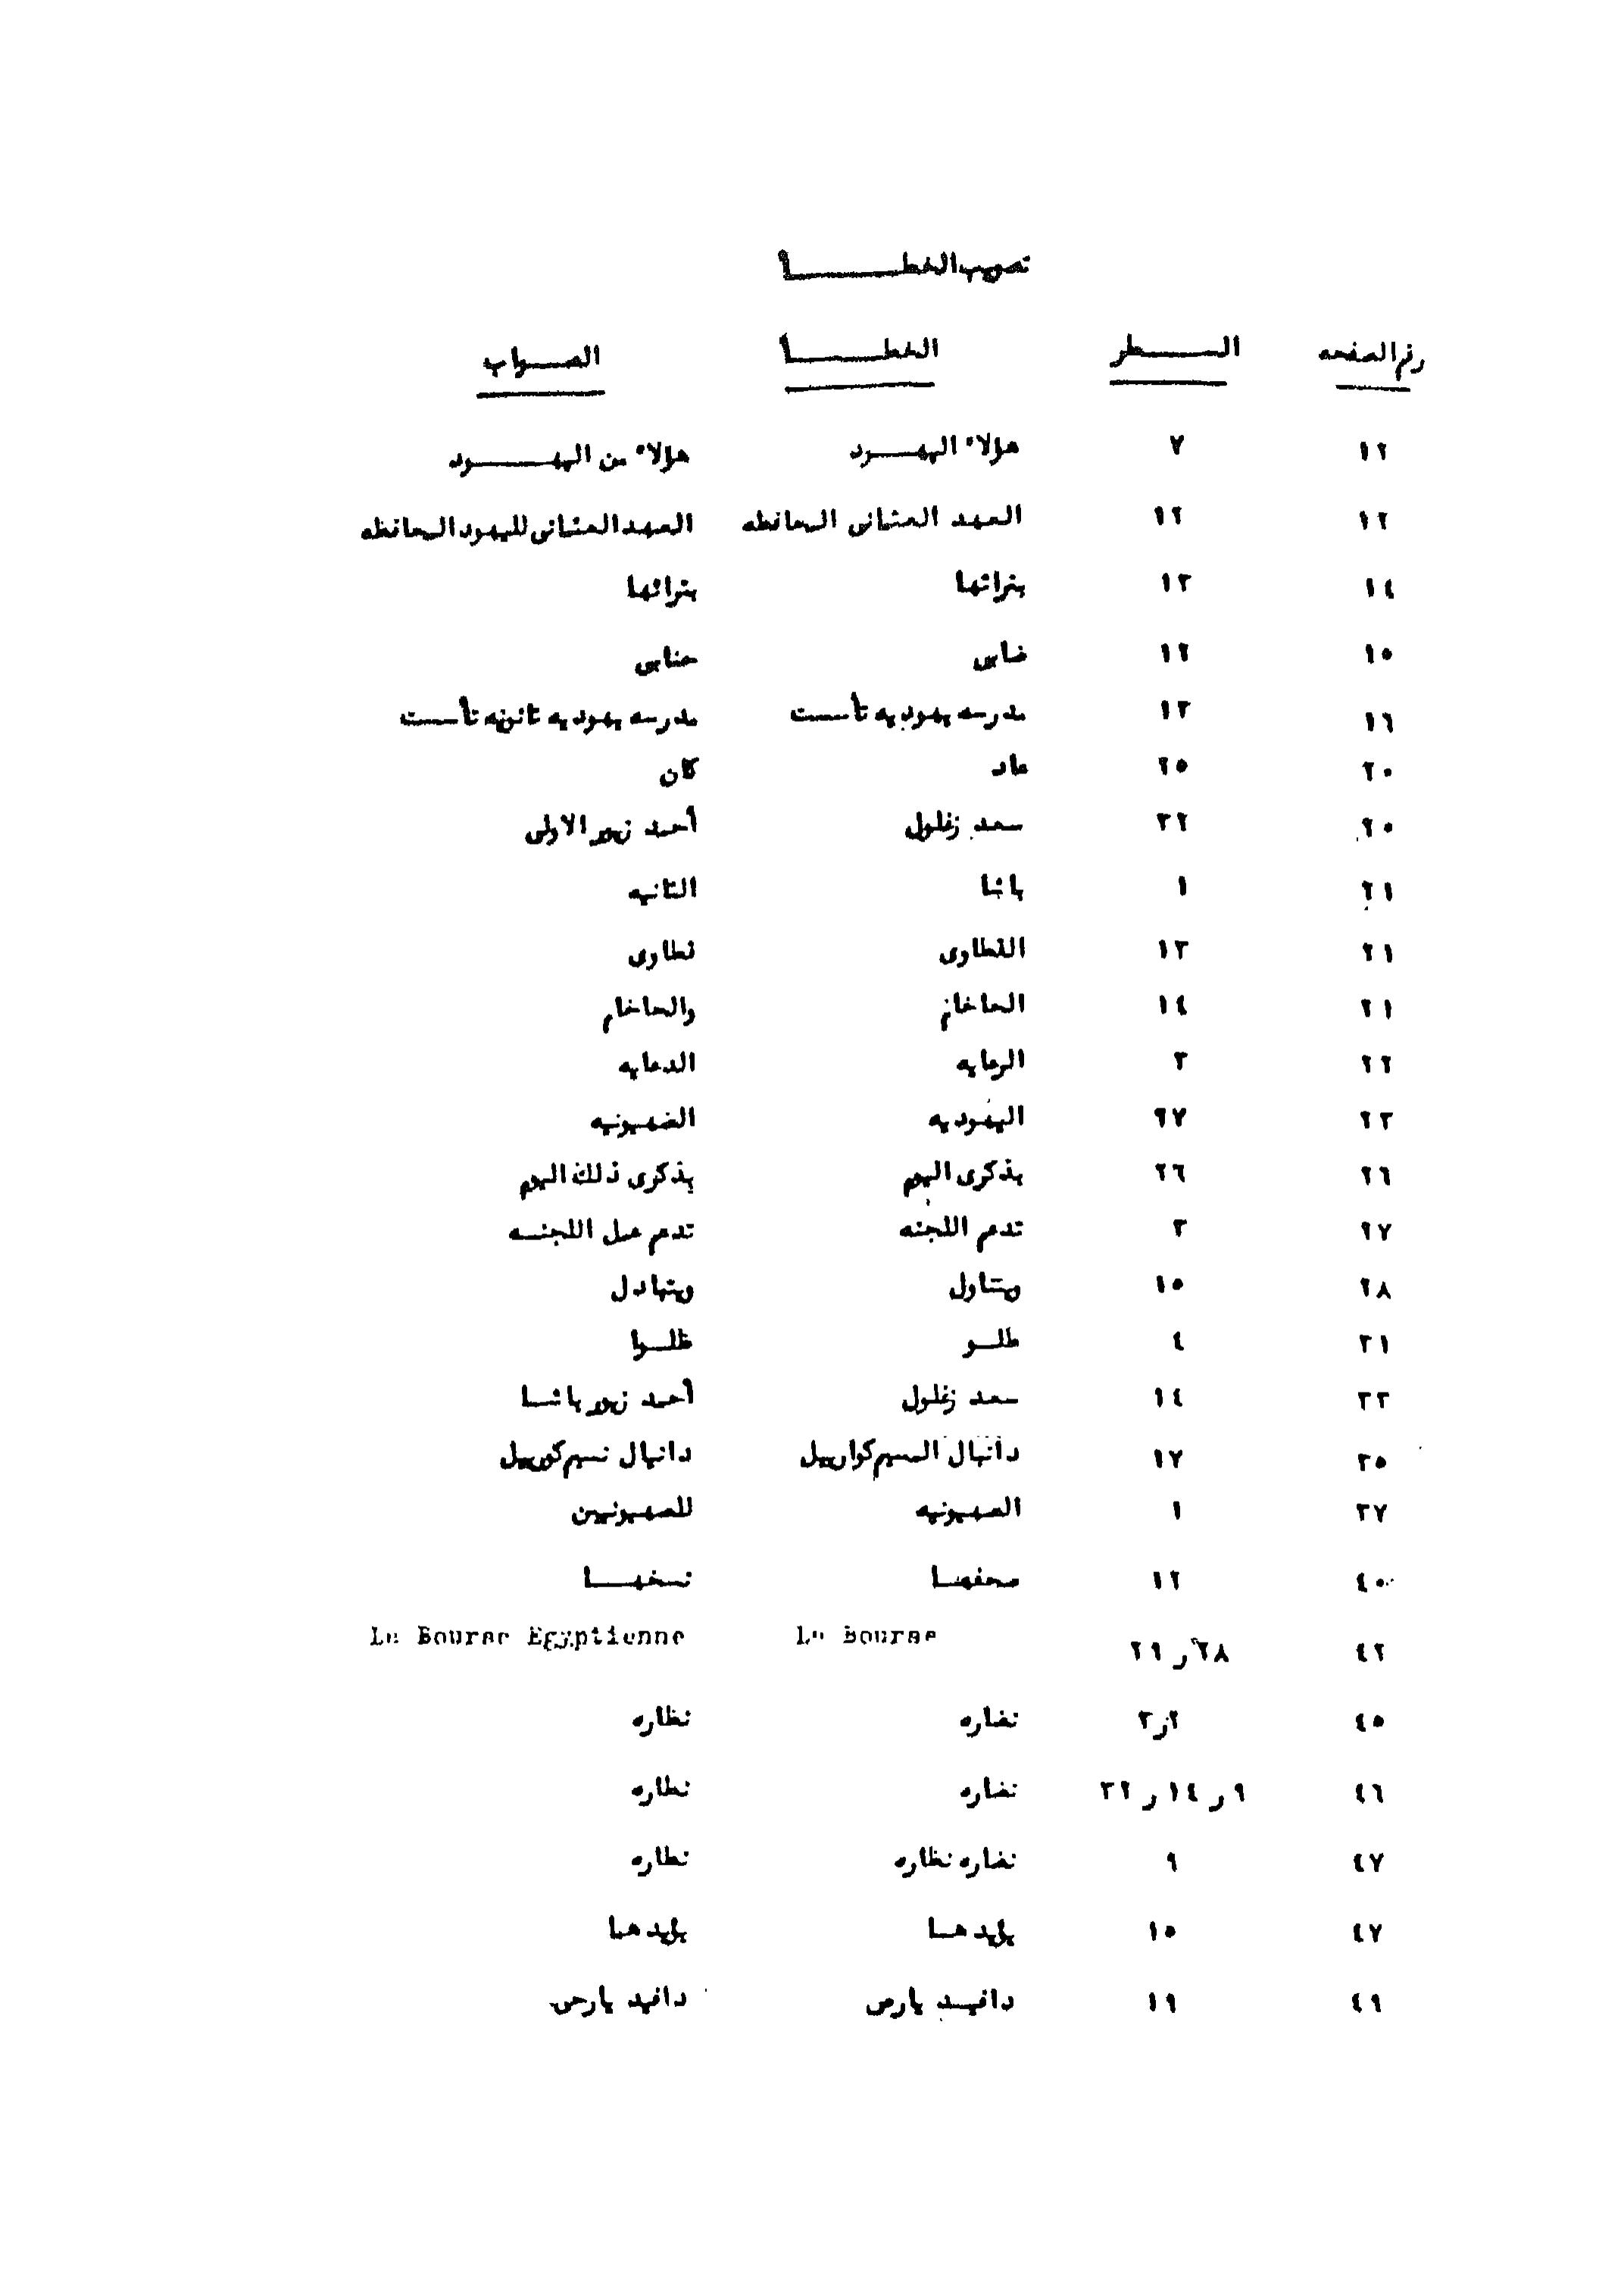 تصويب الخطأ
رقم الصفحه السطر الخطأ الصواب
١٢ ٧ هؤلاء اليهود هؤلاء من اليهود
١٢ ١٢ العهد العثمانى المحافظه العهد العثمانى لليهود المحافظه
١٤ ١٣ بتراثها بتراثها
١٥ ١٢ ضابى حنابى
١٦ ١٣ مدرسه يهوديه تأسست مدرسه يهوديه ثانويه تأسست
٢٠ ٢٥ عاد كان
٢٠ ٣٢ سعد زغلول أحمد زيور الاولى
٢١ ١ باشا الثانيه
٢١ ١٣ القطاوى قطاوى
٢١ ١٤ الحاخام والحاخام
٢٢ ٣ الرعايه الدعايه
٢٣ ٢٧ اليهوديه الصهيونيه
٢٦ ٢٦ بذكرى اليوم بذكرى ذلك اليوم
٢٧ ٣ تدعم اللجنه تدعم عمل اللجنه
٢٨ ١٥ ويتناول ويتبادل
٣١ ٤ طلو ظلوا
٣٣ ١٤ سعد زغلول أحمد زيور باشا
٣٥ ١٧ دانيال المسيم كوارييل دانيال نسيم كورييل
٣٧ ١ الصهيونيه للصهيونيين
٤٠ ١٢ صحفها نسخها
٤٢ ٢٨ر٢٩ La Bourse La Bourse Egyptienne
٤٥ ٢ر٣ نضاره نظاره
٤٦ ٩ر١٤ر٣٢ نضاره نظاره
٤٧ ٩ نضاره نظاره نظاره
٤٧ ١٥
٤٩ ١٩ دافيد